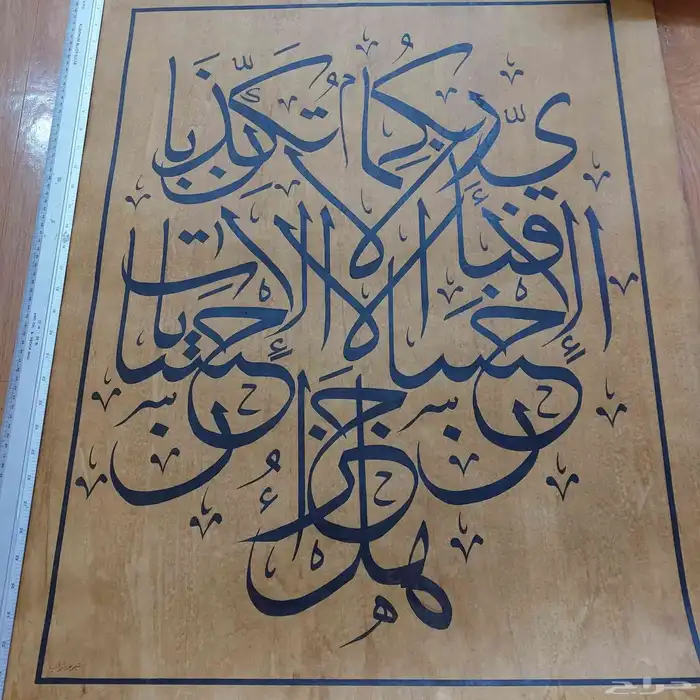 هل جزاء
الإحسان إلا الإحسان
فبأي آلاء ربكما تكذبان
حراج